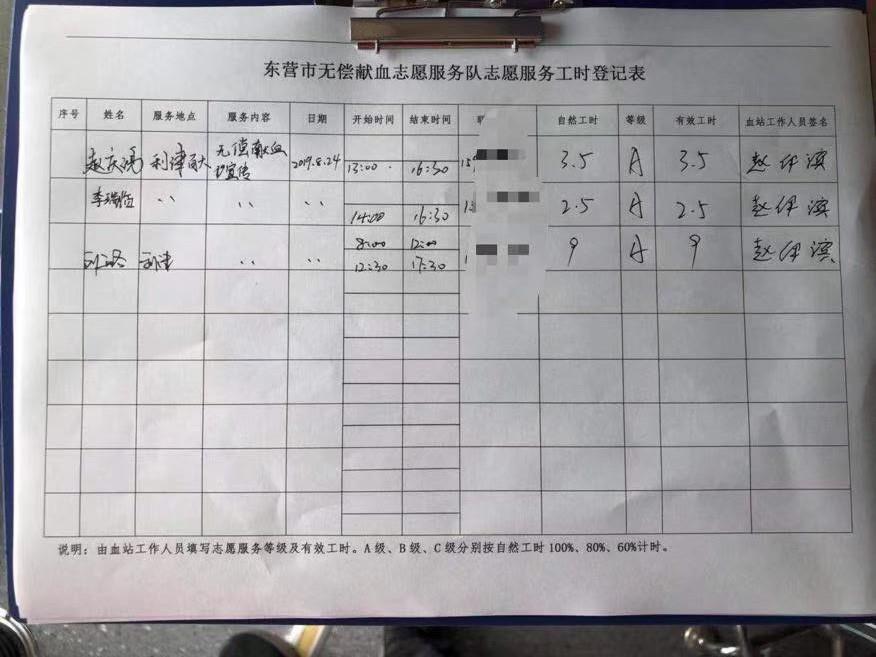 东营市无偿献血志愿服务队志愿服务工时登记表
序号 姓名 服务地点 服务内容 日期 开始时间 结束时间 自然工时 等级 有效工时 血站工作人员签名
赵庆鸿 利津 无偿献血 宣传 2019.8.24 13:00 16:30 3.5 A 3.5 赵伊滨
李瑞 〃 〃 〃 14:00 16:30 2.5 A 2.5 赵伊滨
8:00 12:00
利津 〃 〃 12:30 17:30 9 A 9 赵伊滨
说明：由血站工作人员填写志愿服务等级及有效工时。A级、B级、C级分别按自然工时100%、80%、60%计时。